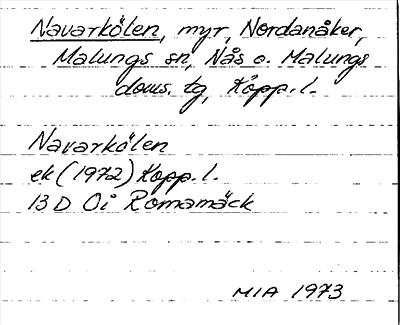 Navarkölen, myr, Nordanåker,
Malungs sn, Nås o. Malungs
doms. tg, Kopp. l.
Navarkölen
ek (1972) Kopp. l.
13 D 0i Romamäck
MIA 1973